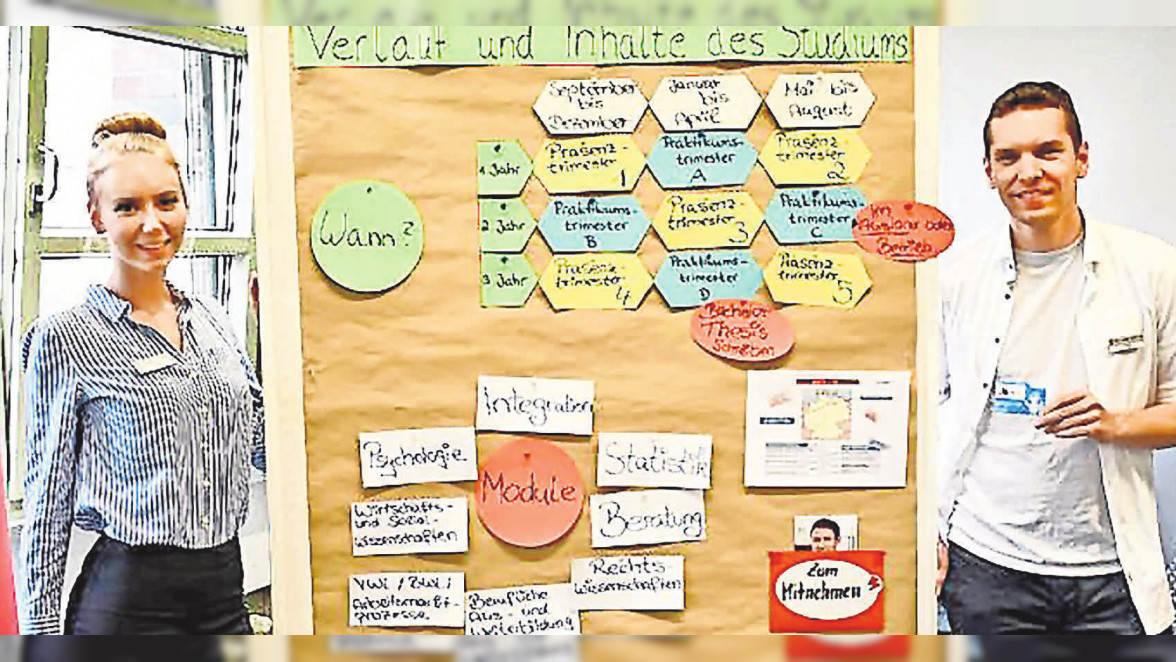 Verlauf und Inhalte des Studiums
September
bis
Dezember
Januar
bis
April
Mai bis
August
1 Jahr
Präsenz-
trimester
1
Praktikums-
trimester
A
Präsenz-
trimester
2
Wann?
2 Jahr
Praktikums-
trimester
B
Präsenz-
trimester
3
Praktikums-
trimester
C
Im
Ausland oder
Betrieb
3 Jahr
Präsenz-
trimester
4
Praktikums-
trimester
D
Präsenz-
trimester
5
Bachelor
Thesis
schreiben
Integration
Psychologie
Statistik
Module
Wirtschafts-
und Sozial-
wissenschaften
Beratung
Rechts
wissenschaften
VWL / BWL /
Berufliche
Aus- und
Weiterbildung
Zum
Mitnehmen